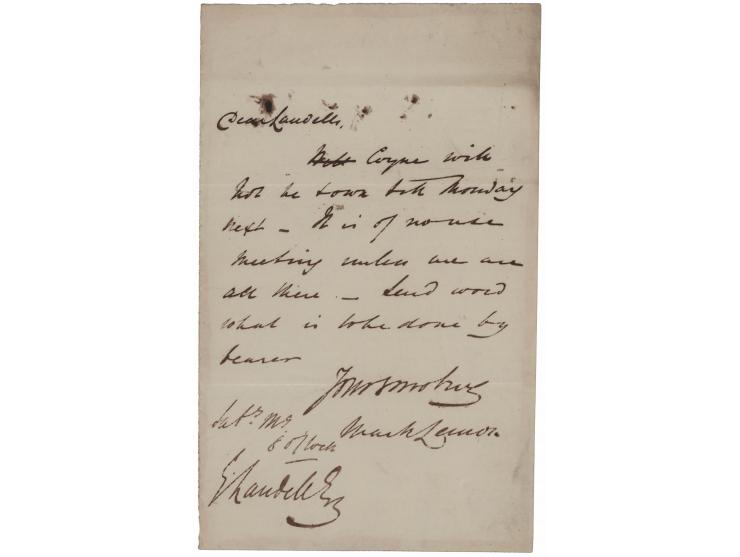 Dear Landells,
Coyne will
not be town till Monday
next - It is of no use
meeting unless we are
all there. - Send word
what is to be done by
bearer
Yours
Mark Lemon
Saty Mg
8 o'clock
E Landells Esq